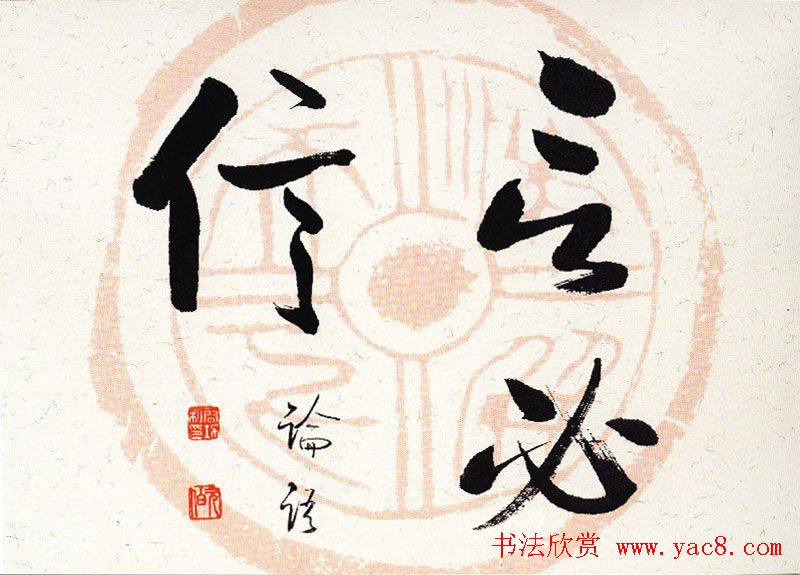 言必
信
論語
书法欣赏 www.yac8.com